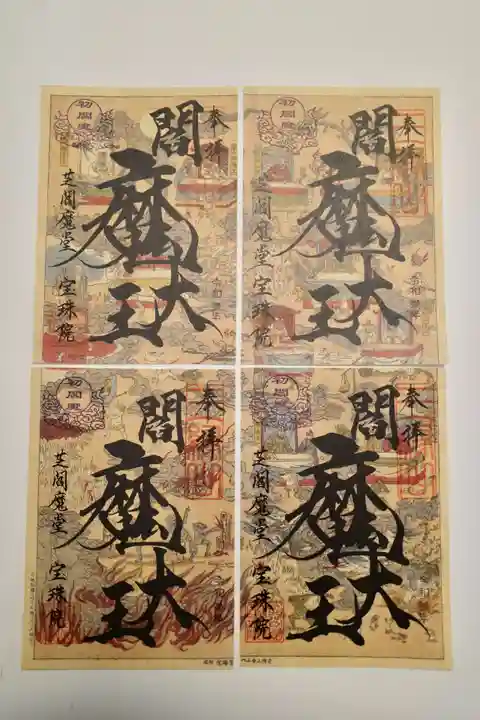 奉拝
閻魔大王
初閻魔
芝閻魔堂 宝珠院
奉拝
閻魔大王
初閻魔
芝閻魔堂 宝珠院
奉拝
閻魔大王
初閻魔
芝閻魔堂 宝珠院
奉拝
閻魔大王
初閻魔
芝閻魔堂 宝珠院